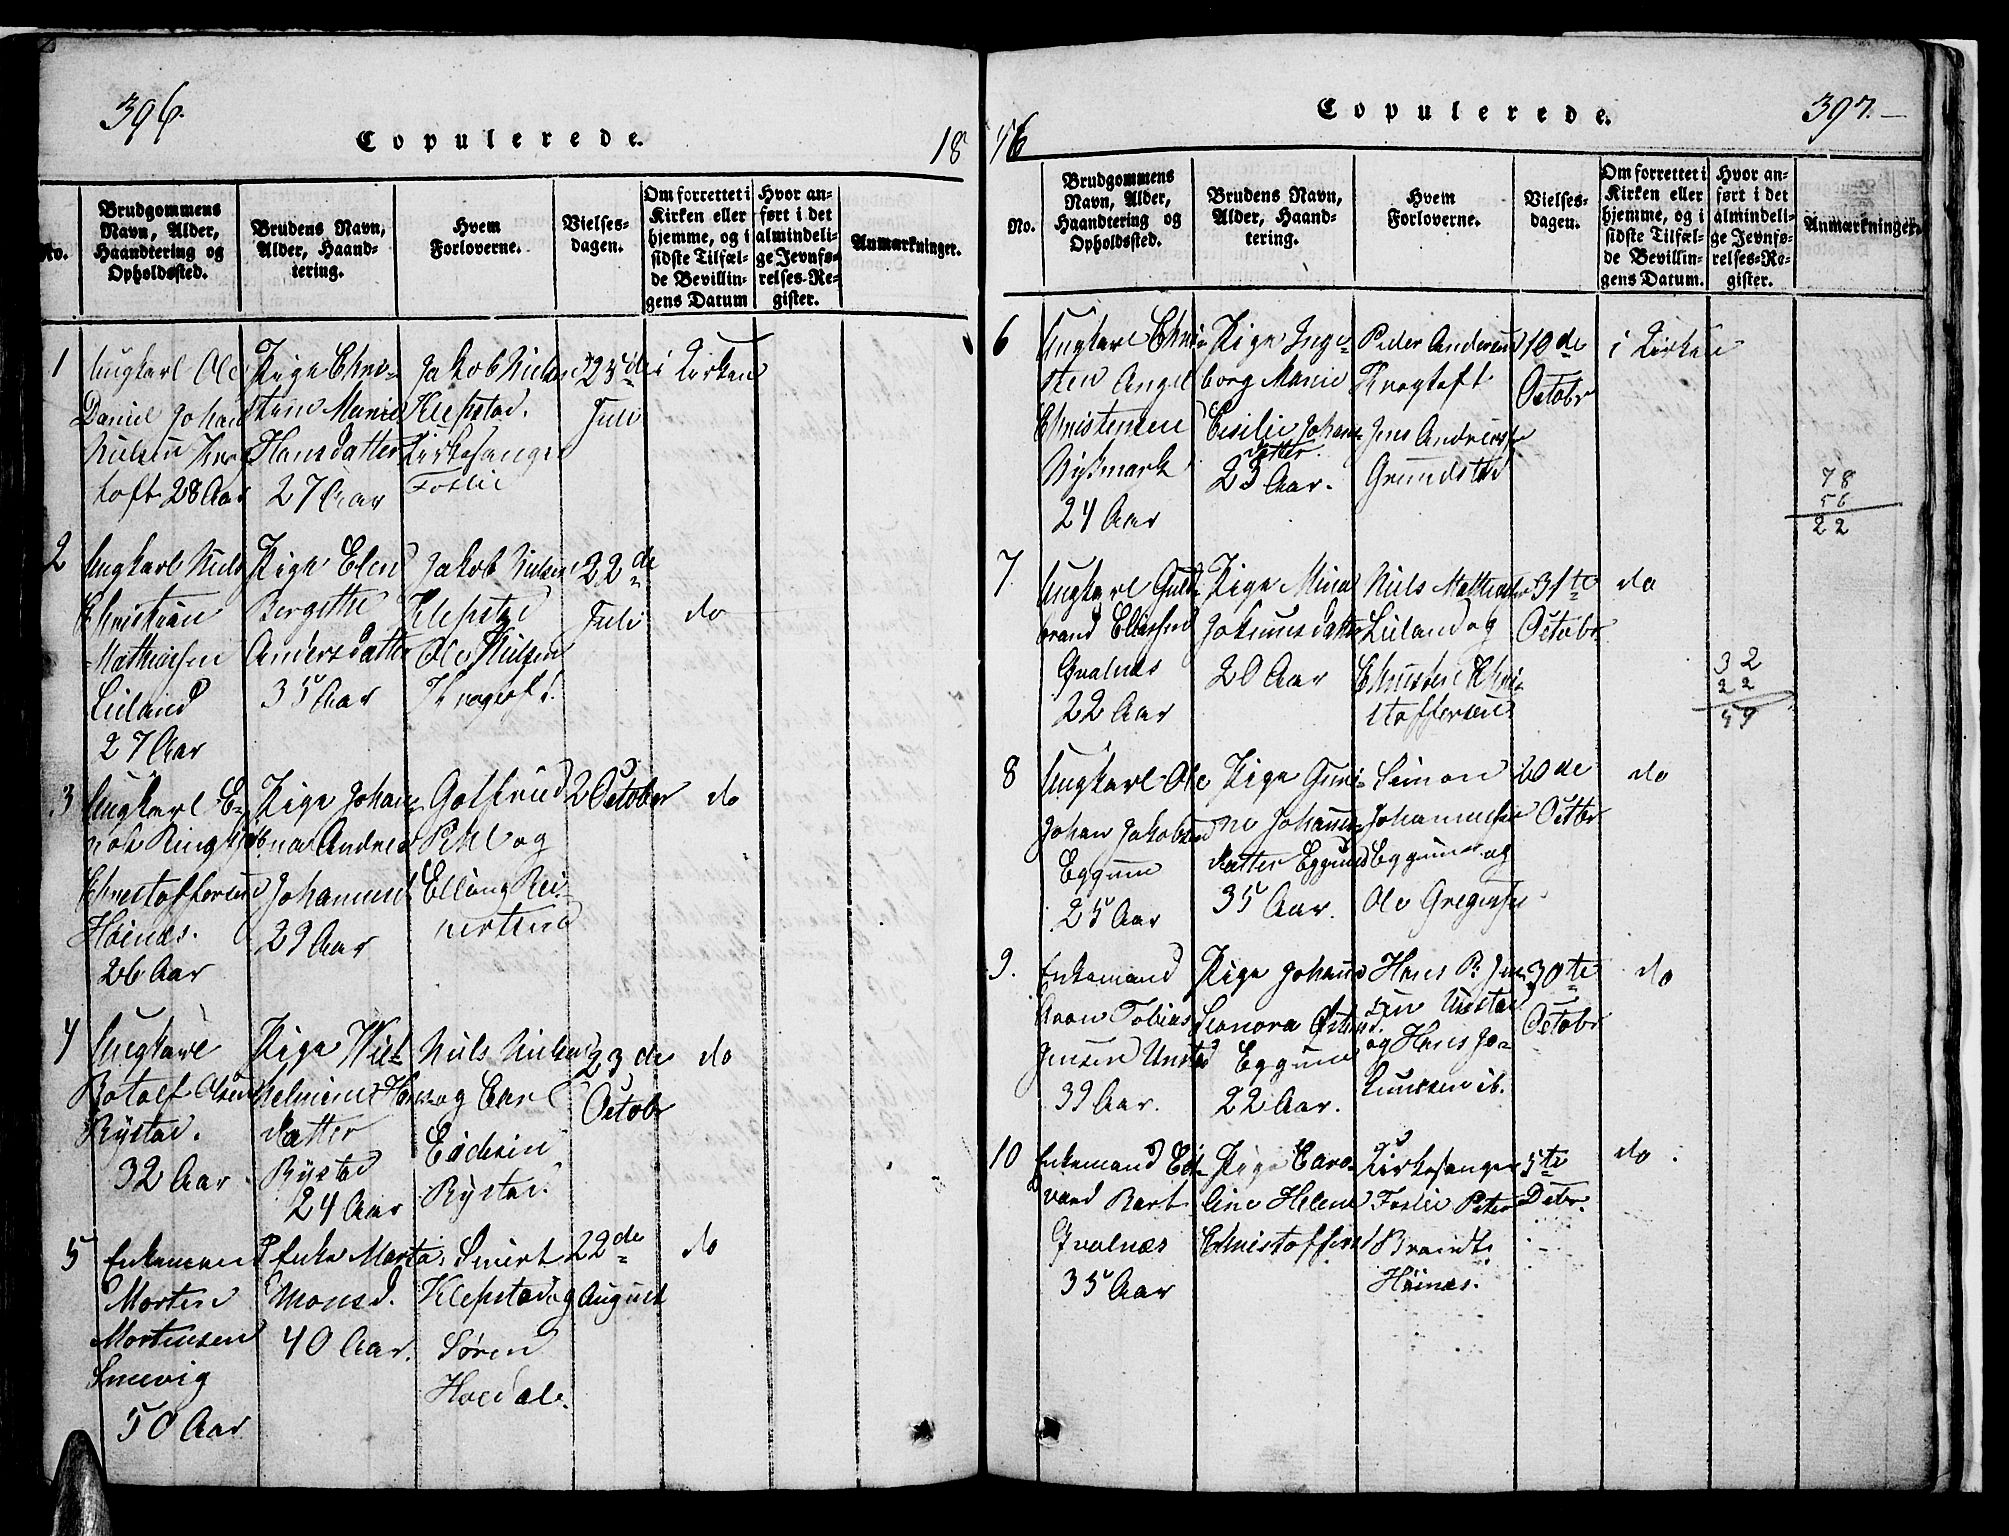 396.
Copulerede.
18
No.
Brudgommens
Navn, Alder,
Haandtering og
Opholdssted.
Brudens Navn,
Alder, Haand-
tering.
Hvem
Forloverne.
Vielses-
dagen.
Om forrettet i
Kirken eller
hjemme, og i
sidste Tilfæl-
de Bevillin-
gens Datum
Hvor an-
ført i det
almindeli-
ge Jevnfø-
relses-Re-
gister.
Anmærkninger.
1
Ungkarl Ole
Daniel Johan
Nielsen Krog
toft 28 Aar
Pige Chri-
stine Marie
Hansdatter
27 Aar
Jakob Nielsen
Klepstad.
Kirkesanger
Foslie
25de
Juli
i Kirken
2
Ungkarl Niels
Christian
Mathiessen
Leiland
27 Aar
Pige Elen
Bergithe
Andersdatter
35 Aar
Jakob Nielsen
Klepstad
Ole Nielsen
Krogtoft.
22de
Juli
do
3
Ungkarl E-
nok Ring
Christoffersen
Høinæs.
26 Aar
Pige Johan-
na Andrea
Johannesd.
29 Aar
Gotfried
Pihl og
Elling Rei-
nertsen
2 October
do
4
Ungkarl
Rotolf Olsen
Rystad.
32 Aar
Pige Wil-
helmine Hans
datter
Rystad
24 Aar
Niels Nielsen
og Carl
Rystad.
23de
Octobr
do
5
Enkemand
Morten
Mortensen
Smevig
50 Aar
Enke Marta
Monsd.
40 Aar.
Sivert
Klepstad og
Søren
Hoedal.
22de
August
do
46
Copulerede.
397.
No.
Brudgommens
Navn, Alder,
Haandtering og
Opholdssted.
Brudens Navn,
Alder, Haand-
tering.
Hvem
Forloverne.
Vielses-
dagen.
Om forrettet i
Kirken eller
hjemme, og i
sidste Tilfæl-
de Bevillin-
gens Datum.
Hvor an-
ført i det
almindeli-
ge Jevnfø-
relses-Re-
gister.
Anmærkninger.
6
Ungkarl Chri-
sten Angel
Christensen
24 Aar
Pige Inge-
borg Marie
Cecilie Johans
datter
23 Aar.
Peder Andersen
Krogtoft
Jens Andersen
Grundstad
10de
Octobr
i Kirken
78
56
22
7
Ungkarl Guld-
brand Eliassen
Qvalnæs
22 Aar
Pige Mina
Johannesdatter
20 Aar
Niels Mathiesen
Leiland og
Christen Chri-
stoffersen
31te
Octobr
do
32
22
54
8
Ungkarl Ole
Johan Jakobsen
Eggum
25 Aar
Pige Guri-
ne Johannes-
datter Eggum
35 Aar.
Simon
Johannessen
Eggum og
Ole Gregersen
20de
Octbr
do
9.
Enkemand
Aron Tobias
Jensen Unstad
39 Aar.
Pige Johanna
Leonora
Eggum
22 Aar.
Hans P. Jen-
sen Unstad
og Hans Jo-
hannesen ib.
30te
Octobr
do
10
Enkemand Ed-
vard Bart
Qvalnæs
35 Aar
Pige Caro-
line Helene
Christoffersd
Kirkesanger
Foslie Peter
Brandt
Høinæs.
5te
Debr.
do.